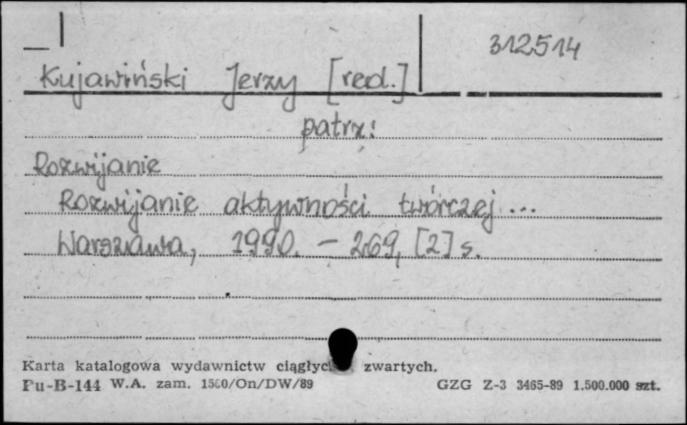 312514
Kujawiński Jerzy [red.]
patrz:
Rozwijanie
Rozwijanie aktywności twórczej ...
Warszawa, 1990. – 269, [2] s.
Karta katalogowa wydawnictw ciągłyc zwartych.
Pu-B-144 W.A. zam. /On/DW/89 GZG Z-3 3465-89 1.500.000 szt.